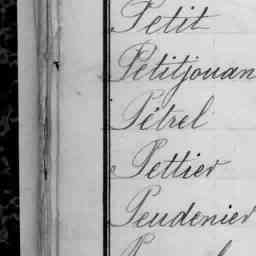 Petit
Petitjouan
Pétrel
Pettier
Peudenier